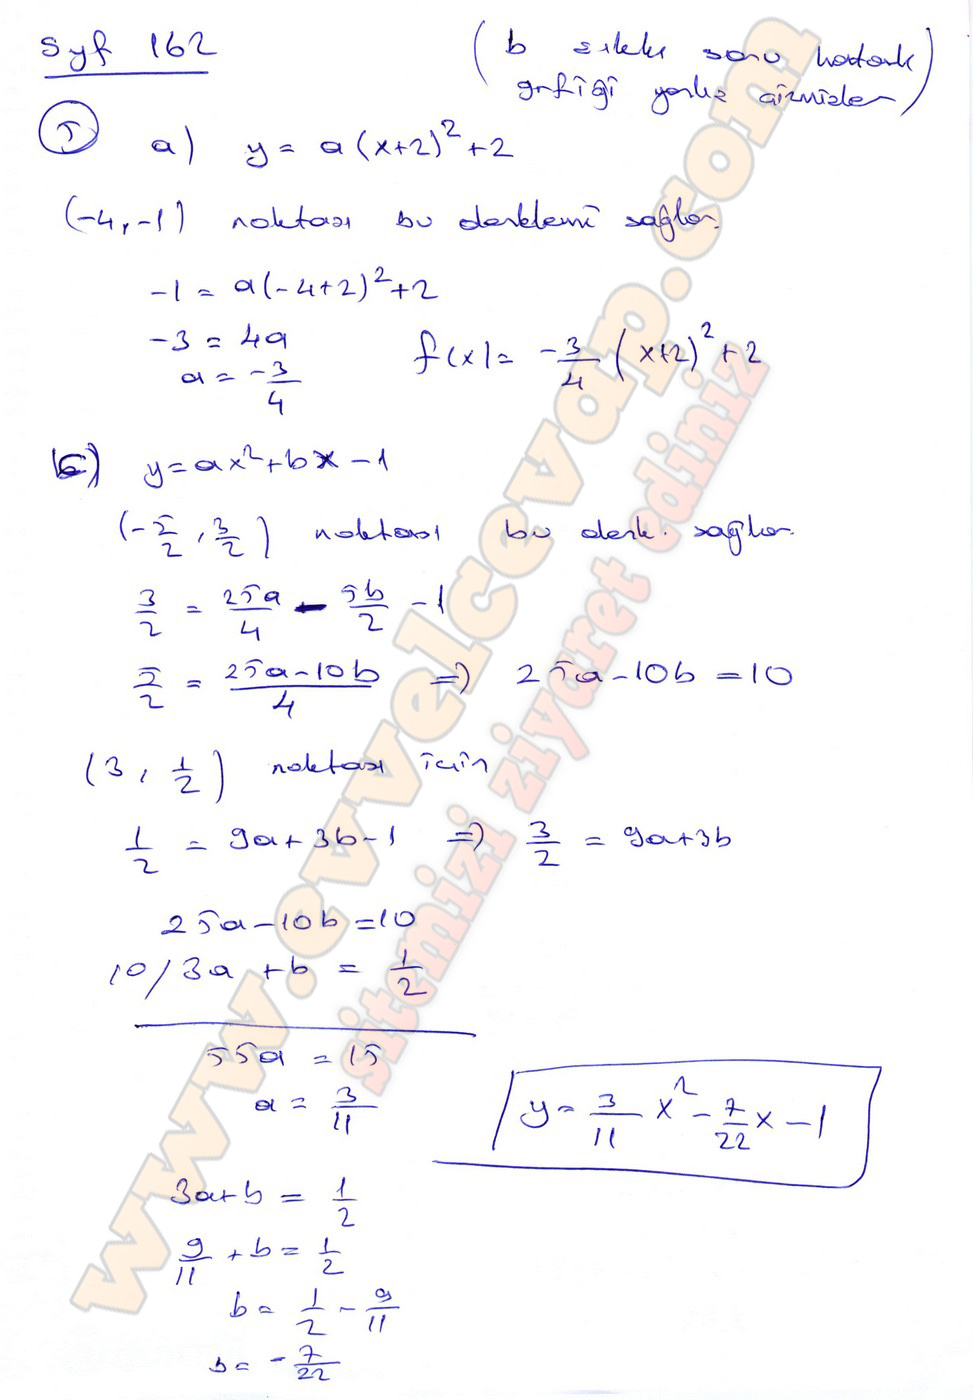 Syf 162
( b şıkkı soru hatalı
grfiği yanlış çizmişler )
5 a) y = a(x+2)² + 2
(-4, -1) noktası bu denklemi sağlar.
-1 = a(-4+2)² + 2
-3 = 4a
a = -3/4
f(x) = -3/4 (x+2)² + 2
c) y = ax² + bx - 1
(-5/2, 3/2) noktası bu denk. sağlar.
3/2 = 25a/4 - 5b/2 - 1
5/2 = 25a-10b/4 ⇒ 25a - 10b = 10
(3, 1/2) noktası için
1/2 = 9a + 3b - 1 ⇒ 3/2 = 9a + 3b
25a - 10b = 10
10/ 3a + b = 1/2
55a = 15
a = 3/11
y = 3/11 x² - 7/22 x - 1
3a + b = 1/2
9/11 + b = 1/2
b = 1/2 - 9/11
b = -7/22
www.evvelcevap.com
sitemizi ziyaret ediniz